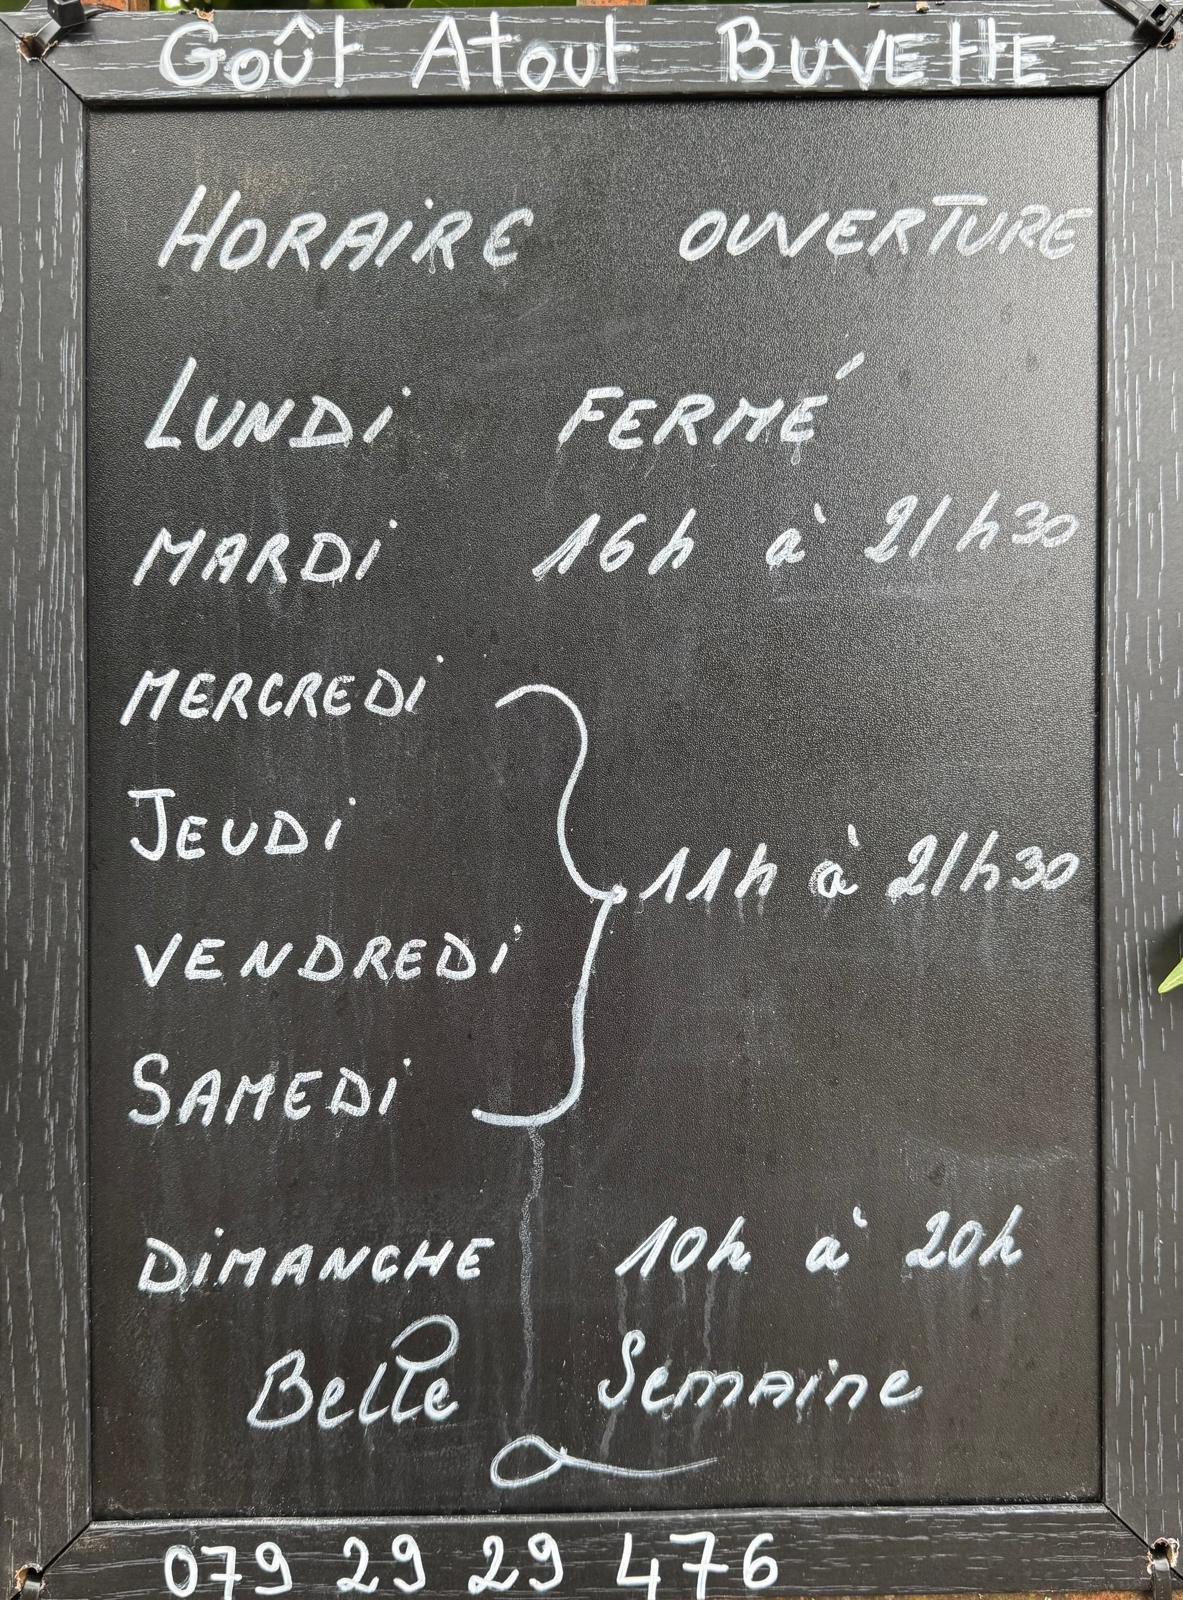 Goût Atout BUVETTE
HORAIRE OUVERTURE
LUNDI FERMÉ
MARDI 16h à 21h30
MERCREDI
JEUDI
11h à 21h30
VENDREDI
SAMEDI
DIMANCHE 10h à 20h
Belle Semaine
079 29 29 476